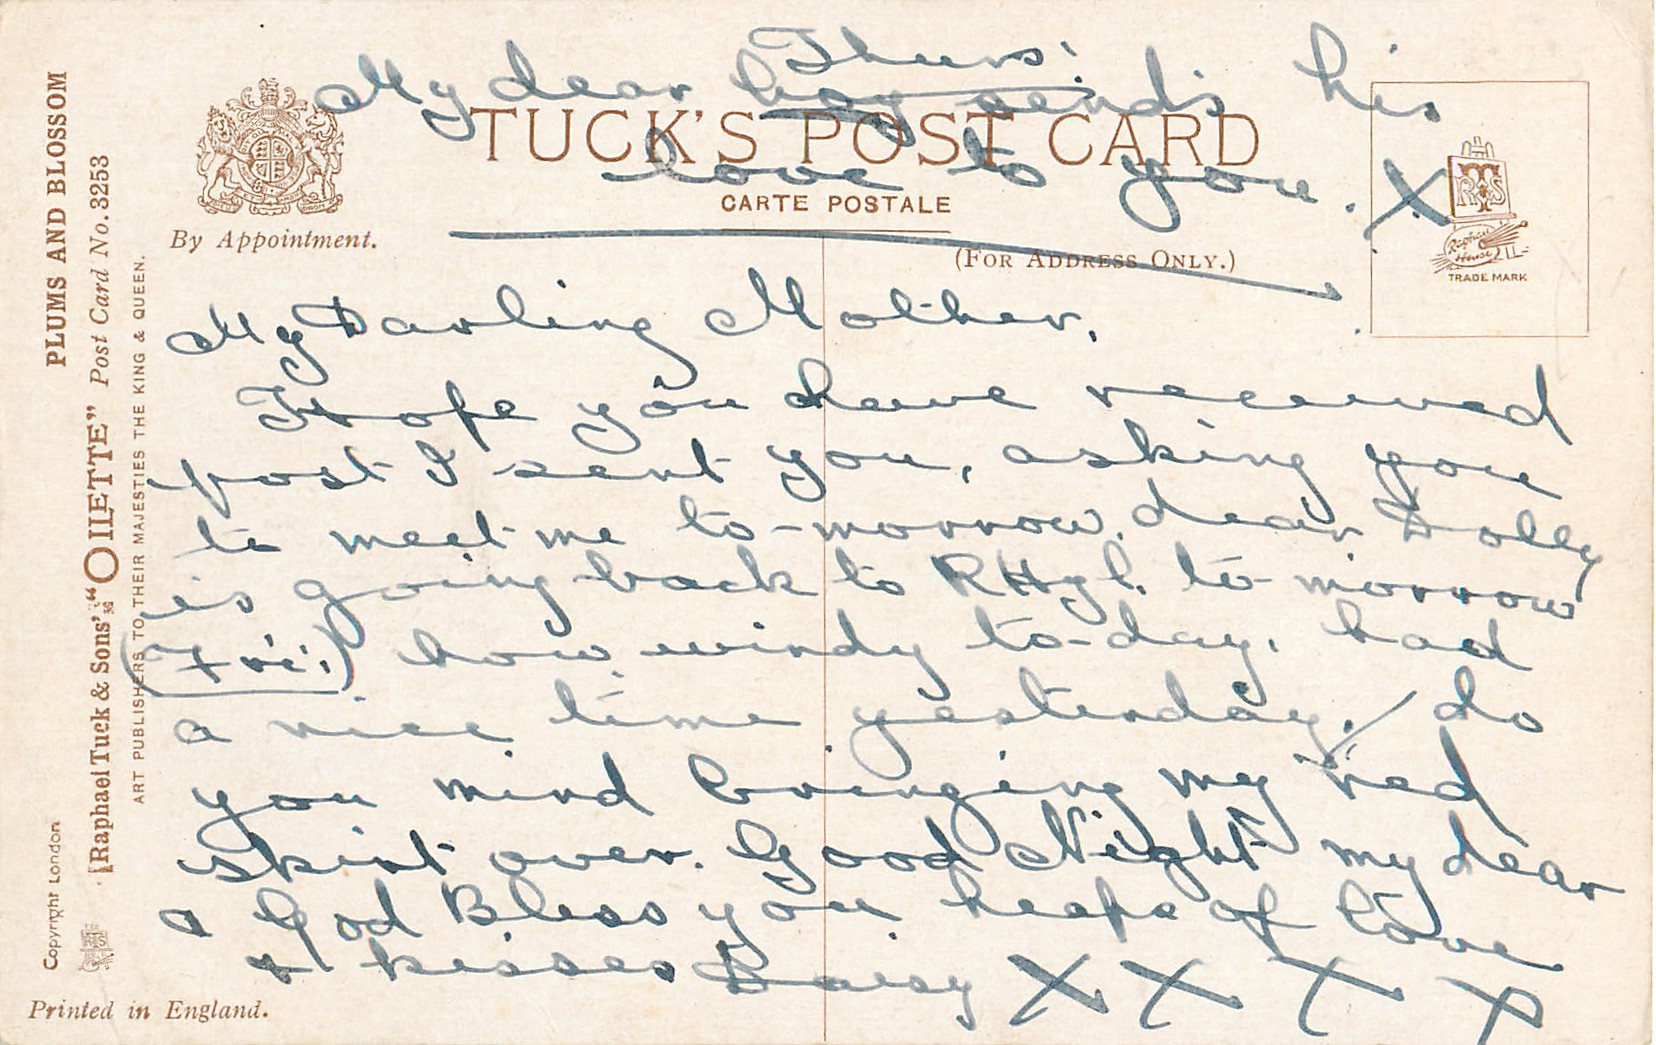 Thurs:
My dear boy sends his
love to you. X
TUCK'S POST CARD
CARTE POSTALE
(FOR ADDRESS ONLY.)
By Appointment.
TRADE MARK
PLUMS AND BLOSSOM
[Raphael Tuck & Sons' "OILETTE" Post Card No. 3253
ART PUBLISHERS TO THEIR MAJESTIES THE KING & QUEEN.
Copyright London
Printed in England.
My Darling Mother,
I hope you have received
post I sent you, asking you
to meet me to-morrow. dear Dolly
is going back to to-morrow
(Fri:) how windy to-day. had
a nice time yesterday. / do
you mind bringing my red
skirt over. Good Night my dear
& God Bless you heaps of love
& kisses Daisy X X X X